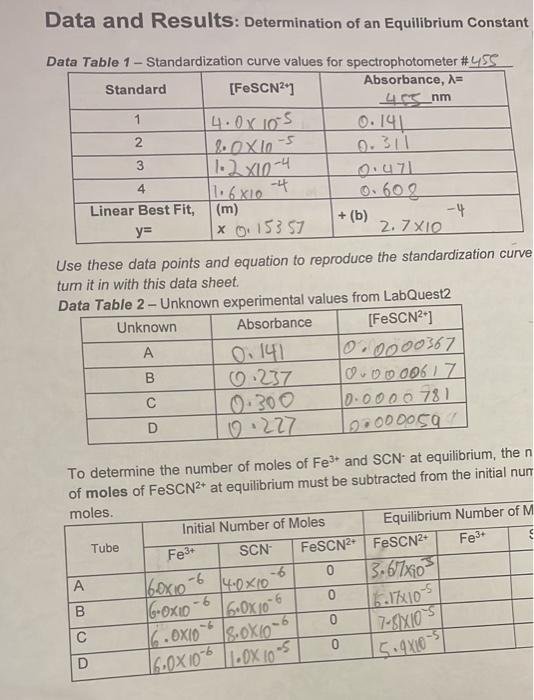 Data and Results: Determination of an Equilibrium Constant
Data Table 1 – Standardization curve values for spectrophotometer # 455
Standard [FeSCN²⁺] Absorbance, λ= 455 nm
1 4.0x10⁻⁵ 0.141
2 8.0x10⁻⁵ 0.311
3 1.2x10⁻⁴ 0.471
4 1.6x10⁻⁴ 0.608
Linear Best Fit, (m) + (b)
y= x 0.15357 2.7x10⁻⁴
Use these data points and equation to reproduce the standardization curve
turn it in with this data sheet.
Data Table 2 – Unknown experimental values from LabQuest2
Unknown Absorbance [FeSCN²⁺]
A 0.141 0.0000367
B 0.237 0.0000617
C 0.300 0.0000781
D 0.227 0.000059
To determine the number of moles of Fe³⁺ and SCN⁻ at equilibrium, the n
of moles of FeSCN²⁺ at equilibrium must be subtracted from the initial num
moles.
Initial Number of Moles Equilibrium Number of M
Tube Fe³⁺ SCN⁻ FeSCN²⁺ FeSCN²⁺ Fe³⁺ S
A 6.0x10⁻⁶ 4.0x10⁻⁶ 0
B 6.0x10⁻⁶ 6.0x10⁻⁶ 0 6.17x10⁻⁵
C 6.0x10⁻⁶ 8.0x10⁻⁶ 0 7.81x10⁻⁵
D 6.0x10⁻⁶ 1.0x10⁻⁵ 0 5.9x10⁻⁵